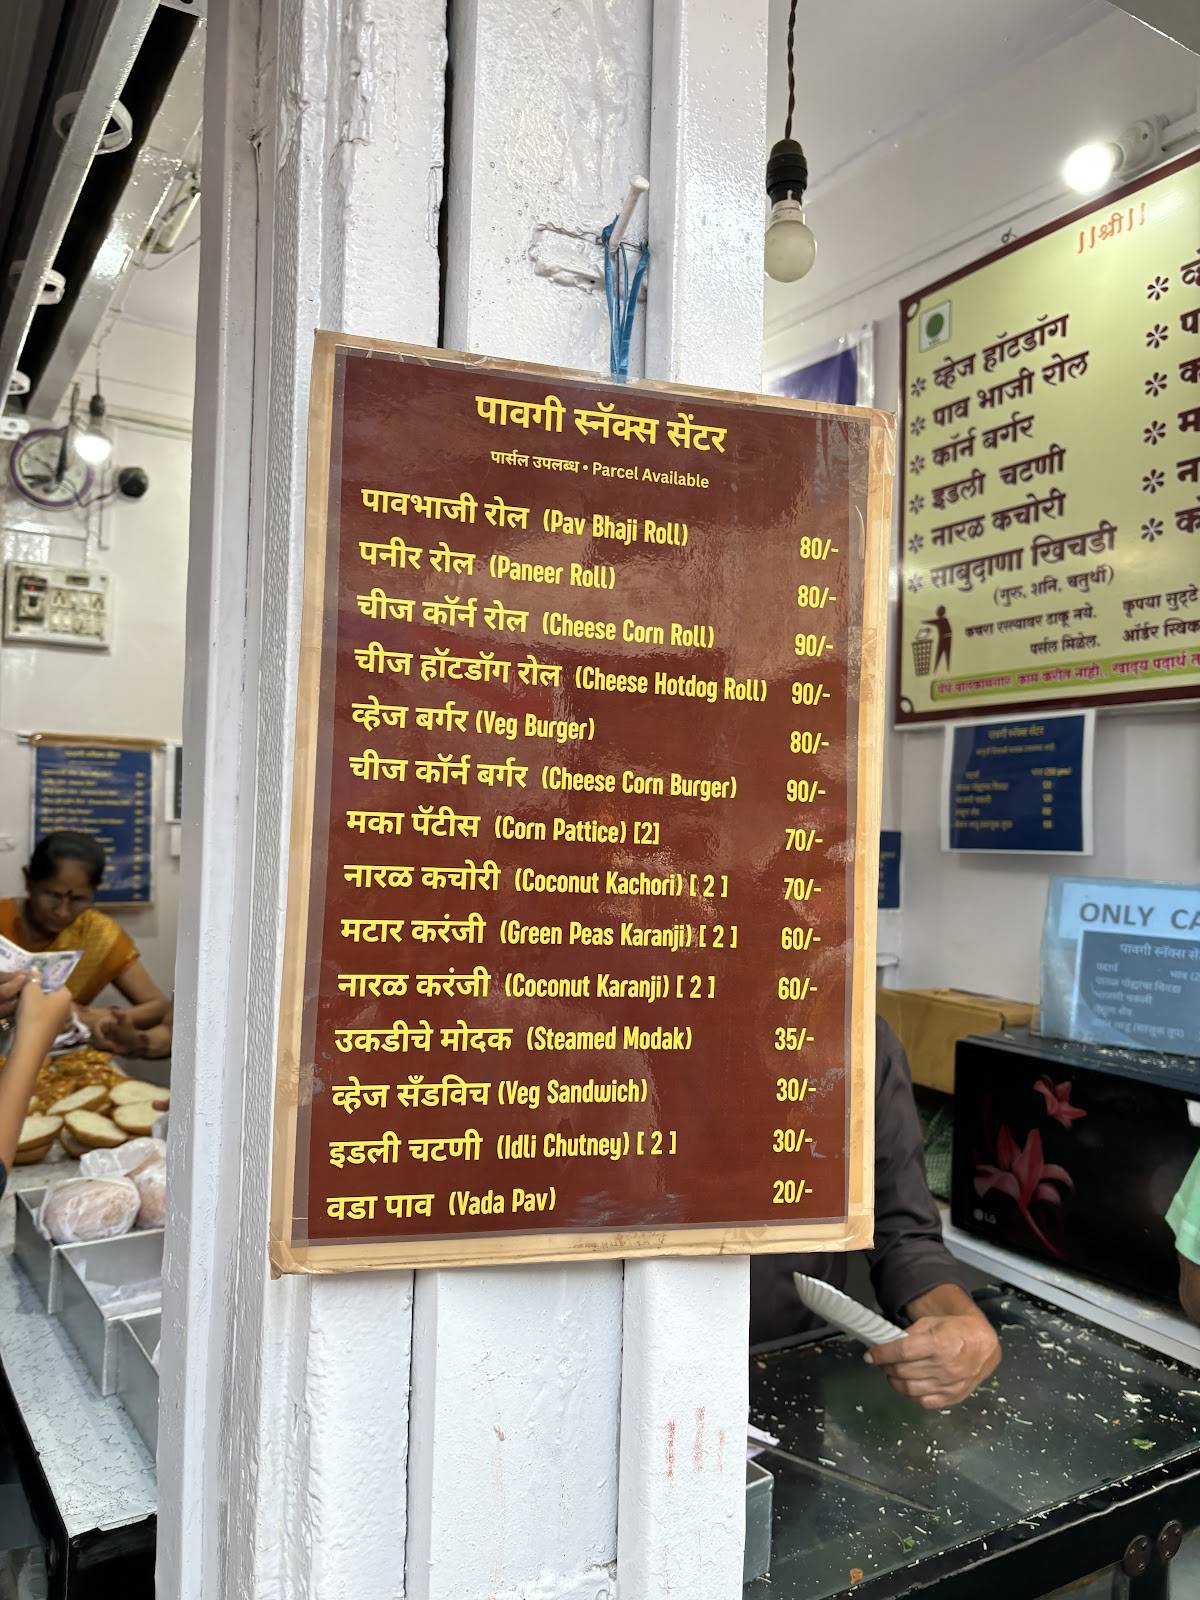 पावगी स्नॅक्स सेंटर
पार्सल उपलब्ध • Parcel Available
पावभाजी रोल (Pav Bhaji Roll) 80/-
पनीर रोल (Paneer Roll) 80/-
चीज कॉर्न रोल (Cheese Corn Roll) 90/-
चीज हॉटडॉग रोल (Cheese Hotdog Roll) 90/-
व्हेज बर्गर (Veg Burger) 80/-
चीज कॉर्न बर्गर (Cheese Corn Burger) 90/-
मका पॅटीस (Corn Pattice) [2] 70/-
नारळ कचोरी (Coconut Kachori) [ 2 ] 70/-
मटार करंजी (Green Peas Karanji) [ 2 ] 60/-
नारळ करंजी (Coconut Karanji) [ 2 ] 60/-
उकडीचे मोदक (Steamed Modak) 35/-
व्हेज सँडविच (Veg Sandwich) 30/-
इडली चटणी (Idli Chutney) [ 2 ] 30/-
वडा पाव (Vada Pav) 20/-
||श्री||
* व्हेज हॉटडॉग
* पाव भाजी रोल
* कॉर्न बर्गर
* इडली चटणी
* नारळ कचोरी
* साबुदाणा खिचडी
(गुरु, शनि, चतुर्थी)
कचरा रस्त्यावर टाकू नये. कृपया सुट्टे
पर्सल मिळेल. ऑर्डर स्विक
येथे बालकामगार काम करीत नाही. खाद्य पदार्थ
ONLY CA
पावगी स्नॅक्स से
पदार्थ
LG